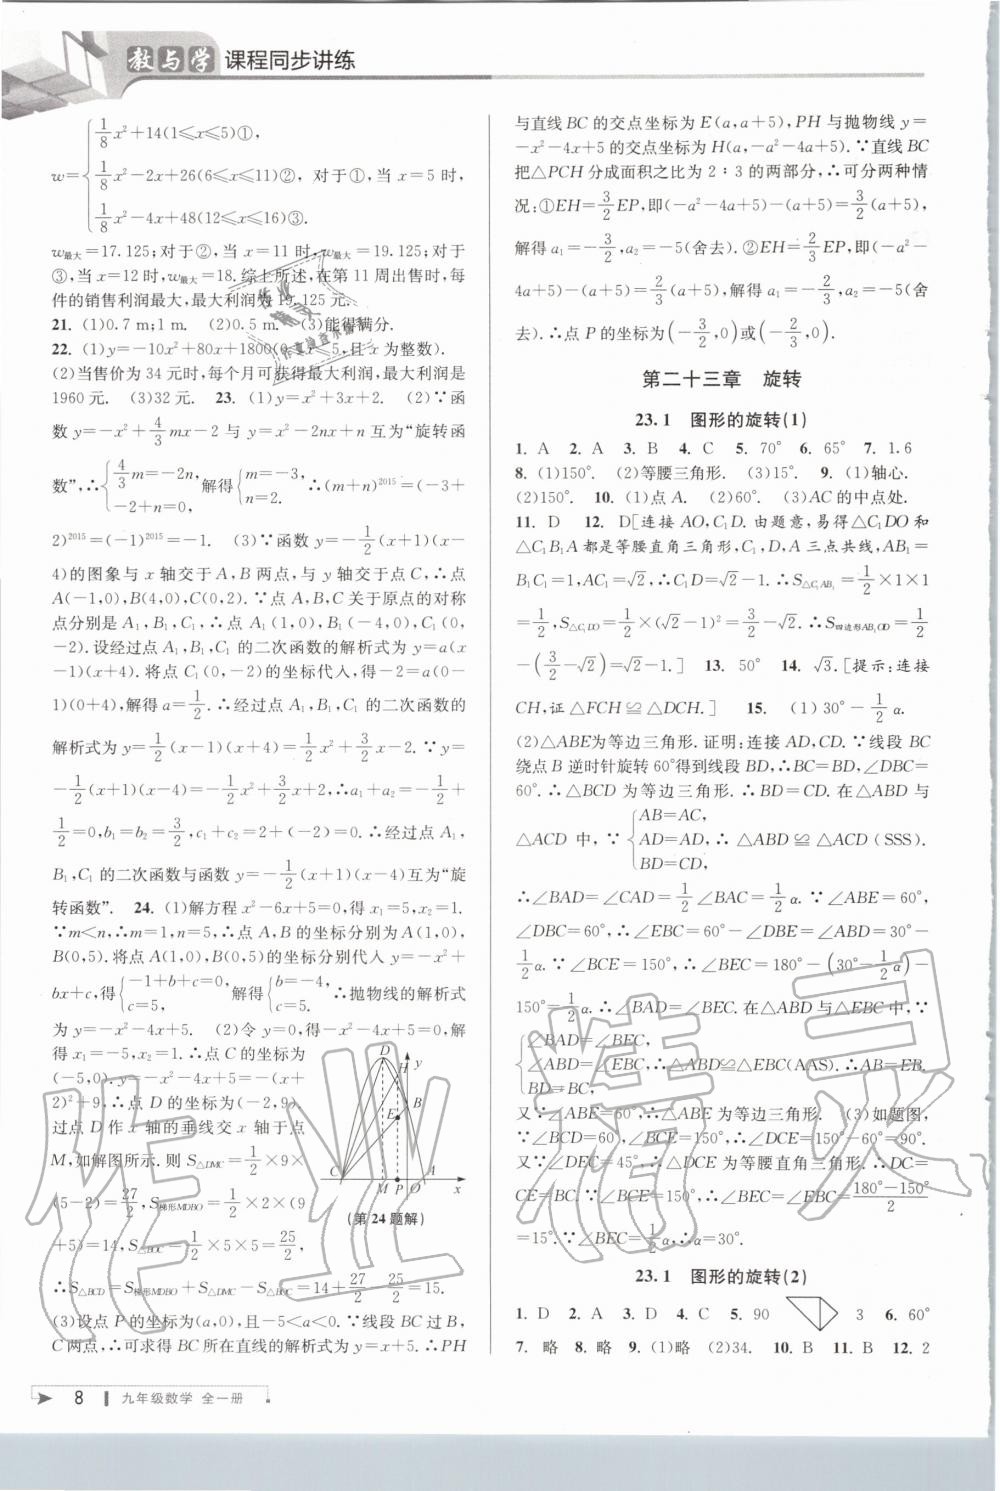 教与学 课程同步讲练
w={1/8 x²+14(1⩽x⩽5)①,
1/8 x²-2x+26(6⩽x⩽11)②, 对于①,当 x=5 时,
1/8 x²-4x+48(12⩽x⩽16)③.
w最大=17.125;对于②,当 x=11 时,w最大=19.125;对于
③,当 x=12 时,w最大=18.综上所述,在第 11 周出售时,每
件的销售利润最大,最大利润为 19.125 元.
21. (1)0.7 m;1 m. (2)0.5 m. (3)能得满分.
22. (1)y=-10x²+80x+1800(0⩽x⩽5,且 x 为整数).
(2)当售价为 34 元时,每个月可获得最大利润,最大利润是
1960 元. (3)32 元. 23. (1)y=x²+3x+2. (2)∵函
数 y=-x²+4/3 mx-2 与 y=x²-2nx+n 互为“旋转函
数”,∴{4/3 m=-2n, -2+n=0, 解得{m=-3, n=2. ∴(m+n)²⁰¹⁵=(-3+
2)²⁰¹⁵=(-1)²⁰¹⁵=-1. (3)∵函数 y=-1/2(x+1)(x-
4)的图象与 x 轴交于 A,B 两点,与 y 轴交于点 C,∴点
A(-1,0),B(4,0),C(0,2).∵点 A,B,C 关于原点的对称
点分别是 A₁,B₁,C₁,∴点 A₁(1,0),B₁(-4,0),C₁(0,
-2).设经过点 A₁,B₁,C₁ 的二次函数的解析式为 y=a(x
-1)(x+4).将点 C₁(0,-2)的坐标代入,得-2=a(0-
1)(0+4),解得 a=1/2.∴经过点 A₁,B₁,C₁ 的二次函数的
解析式为 y=1/2(x-1)(x+4)=1/2 x²+3/2 x-2.∵y=
-1/2(x+1)(x-4)=-1/2 x²+3/2 x+2,∴a₁+a₂=-1/2+
1/2=0,b₁=b₂=3/2,c₁+c₂=2+(-2)=0.∴经过点 A₁,
B₁,C₁ 的二次函数与函数 y=-1/2(x+1)(x-4)互为“旋
转函数”. 24. (1)解方程 x²-6x+5=0,得 x₁=5,x₂=1.
∵m<n,∴m=1,n=5,∴点 A,B 的坐标分别为 A(1,0),
B(0,5).将点 A(1,0),B(0,5)的坐标分别代入 y=-x²+
bx+c,得{-1+b+c=0, c=5, 解得{b=-4, c=5. ∴抛物线的解析式
为 y=-x²-4x+5. (2)令 y=0,得-x²-4x+5=0,解
得 x₁=-5,x₂=1.∴点 C 的坐标为
(-5,0).y=-x²-4x+5=-(x+
2)²+9,∴点 D 的坐标为(-2,9).
过点 D 作 x 轴的垂线交 x 轴于点
M,如解图所示.则 S△DMC=1/2×9×
(5-2)=27/2,S梯形MDBO=1/2×2×(9
+5)=14,S△BOC=1/2×5×5=25/2,
D y H B E C M P O A x
(第 24 题解)
∴S△BCD=S梯形MDBO+S△DMC-S△BOC=14+27/2-25/2=15.
(3)设点 P 的坐标为(a,0),且-5<a<0.∵线段 BC 过 B,
C 两点,∴可求得 BC 所在直线的解析式为 y=x+5.∴PH
与直线 BC 的交点坐标为 E(a,a+5),PH 与抛物线 y=
-x²-4x+5 的交点坐标为 H(a,-a²-4a+5).∵直线 BC
把△PCH 分成面积之比为 2∶3 的两部分,∴可分两种情
况:①EH=3/2 EP,即(-a²-4a+5)-(a+5)=3/2(a+5),
解得 a₁=-3/2,a₂=-5(舍去).②EH=2/3 EP,即(-a²-
4a+5)-(a+5)=2/3(a+5),解得 a₁=-2/3,a₂=-5(舍
去).∴点 P 的坐标为(-3/2,0)或(-2/3,0).
第二十三章 旋转
23.1 图形的旋转(1)
1. A 2. A 3. B 4. C 5. 70° 6. 65° 7. 1.6
8. (1)150°. (2)等腰三角形. (3)15°. 9. (1)轴心.
(2)150°. 10. (1)点 A. (2)60°. (3)AC 的中点处.
11. D 12. D[连接 AO,C₁D.由题意,易得△C₁DO 和
△C₁B₁A 都是等腰直角三角形,C₁,D,A 三点共线,AB₁=
B₁C₁=1,AC₁=√2,∴C₁D=√2-1.∴S△C₁AB₁=1/2×1×1
=1/2,S△C₁DO=1/2×(√2-1)²=3/2-√2.∴S四边形AB₁OD=1/2
-(3/2-√2)=√2-1.] 13. 50° 14. √3.[提示:连接
CH,证△FCH≌△DCH.] 15. (1)30°-1/2 α.
(2)△ABE为等边三角形.证明:连接 AD,CD.∵线段 BC
绕点 B 逆时针旋转 60°得到线段 BD,∴BC=BD,∠DBC=
60°.∴△BCD 为等边三角形.∴BD=CD.在△ABD 与
△ACD 中,∵{AB=AC, AD=AD, BD=CD, ∴△ABD≌△ACD(SSS).
∴∠BAD=∠CAD=1/2∠BAC=1/2 α.∵∠ABE=60°,
∠DBC=60°,∴∠EBC=60°-∠DBE=∠ABD=30°-
1/2 α.∵∠BCE=150°,∴∠BEC=180°-(30°-1/2 α)-
150°=1/2 α.∴∠BAD=∠BEC.在△ABD 与△EBC 中,∵
{∠BAD=∠BEC,
∠ABD=∠EBC,∴△ABD≌△EBC(AAS).∴AB=EB.
BD=BC,
又∵∠ABE=60°,∴△ABE 为等边三角形. (3)如题图,
∵∠BCD=60°,∠BCE=150°,∴∠DCE=150°-60°=90°.
又∵∠DEC=45°,∴△DCE 为等腰直角三角形.∴DC=
CE=BC.∵∠BCE=150°,∴∠EBC=∠BEC=(180°-150°)/2
=15°.∵∠BEC=1/2 α,∴α=30°.
23.1 图形的旋转(2)
1. D 2. A 3. D 4. C 5. 90 3 6. 60°
7. 略 8. 略 9. (1)略 (2)34. 10. B 11. B 12. 2
8 九年级数学 全一册
作业精灵